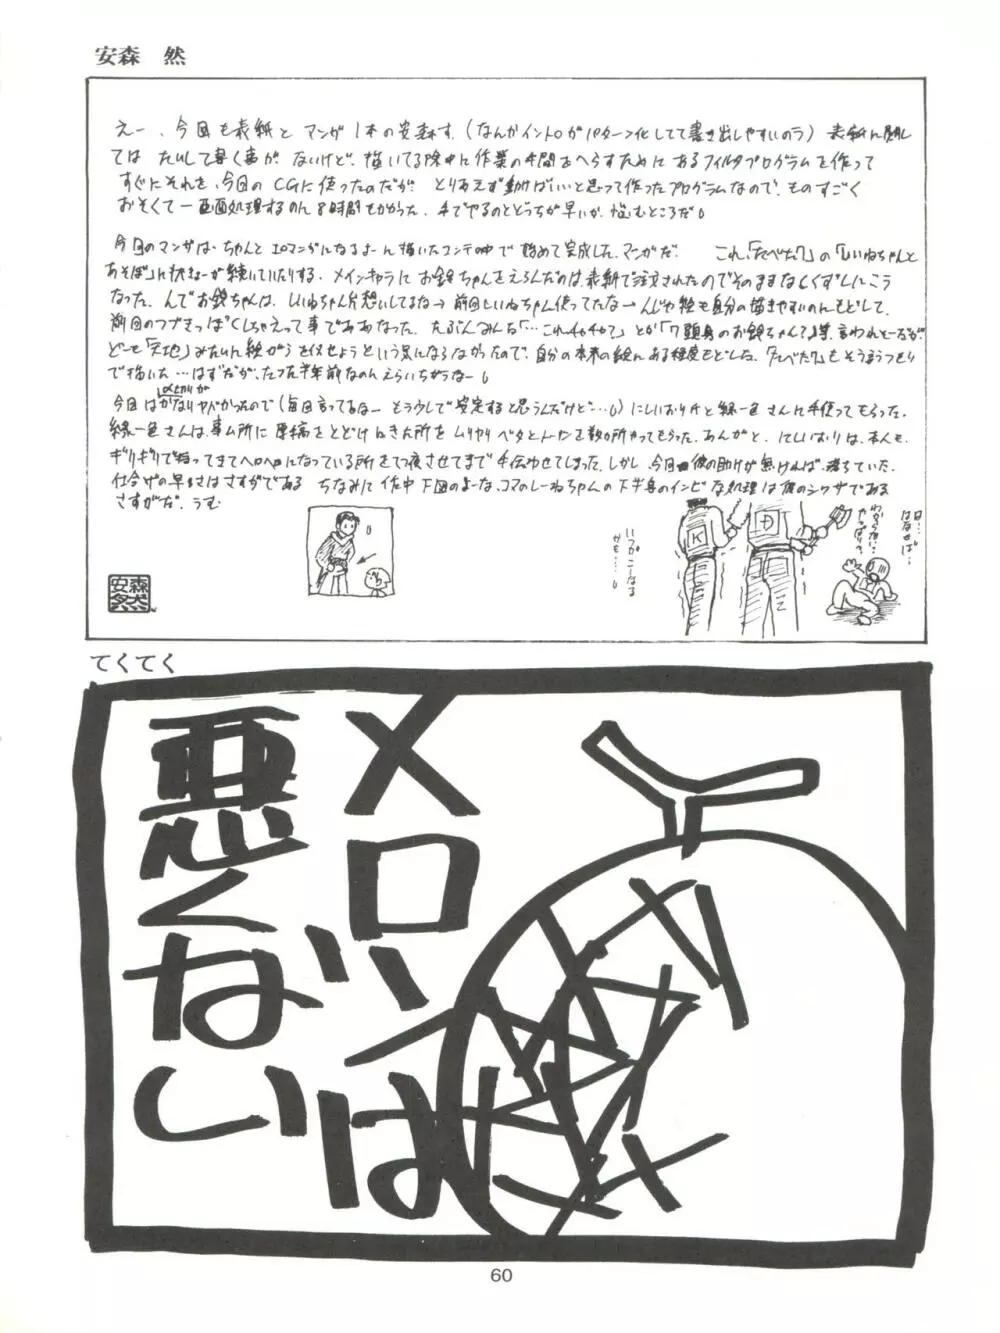 安森 然
えー、今回も表紙と マンガ1本の安森す。(なんかイントロがパターン化してて書き出しやすいのう) 表紙に関し
ては たいして書く事が ないけど、描いてる除中に作業の手間をへらすために あるフィルタプログラムを作って
すぐにそれを、今回の CGに使ったのだが とりあえず動けばいいと思って作ったプログラムなので、ものすごく
おそくて一画面処理するのん8時間もかかった。手でやるのとどっちが早いか、悩むところだ
今回のマンガは、ちゃんと エロマンガになるよーん描いたコンテの中で 始めて完成した、マンガだ。 これ、「たべた?」の「しいねちゃんと
あそぼ」に 続いていたりする。メインキャラに お鈴ちゃんをえらんだのは、表紙で注文されたのでそのままなしくずしにこう
なった。んでお鈴ちゃんは、しいねちゃん片想いしてるな→前回しいねちゃん使ってたな→んじゃ絵も自分の描きやすいのんもどして、
前回のつづきっぽくしちゃえって事でああなった。たぶんみんな「…これチャチャ?」とか「7頭身のお鈴ちゃんて」
どーも「天地」みたいに絵がらを似せようという気にならなかったので、自分の本来の絵に ある程度もどした。「たべた?」も そうゆうつもり
で描いた…はずだが、たった半年前なのん えらいちがうなー
〆切りが
今回はかなりヤバかったので(毎回言ってるなー もう少しで安定すると思うんだけど…) にしいおり氏と緑一色さんに手伝ってもらった。
緑一色さんは、事ム所に 原稿をとどけにきた所を ムリヤリ ベタとトーンを数か所やってもらった。あんがと、にしいおりは、本人も、
ギリギリで持ってきてヘロヘロになっている所をてつ夜させてまで 手伝わせてしまった。しかし、今回は彼の助けが無ければ、落ちていた。
仕上げの早さはさすがである ちなみに 作中 下図のよーな、コマのしーねちゃんの下半身のインビな処理は彼のシワザである
さすがだ。うむ
いつかこーなる
かも……
K
D
日…
はなせば…
わからない…
やっぱり?
安森
然
てくてく
メロンは
悪くない
60